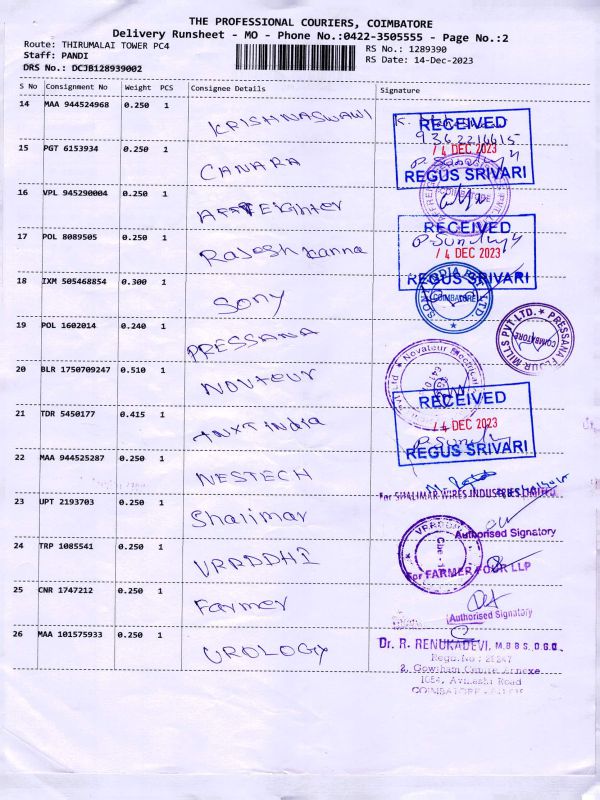 THE PROFESSIONAL COURIERS, COIMBATORE
Delivery Runsheet - MO - Phone No.:0422-3505555 - Page No.:2
Route: THIRUMALAI TOWER PC4
RS No.: 1289390
Staff: PANDI
RS Date: 14-Dec-2023
DRS No.: DCJB128939002
S No Consignment No Weight PCS Consignee Details Signature
14 MAA 944524968 0.250 1 KRISHNASWAMI
RECEIVED
9362216615
14 DEC 2023
REGUS SRIVARI
15 PGT 6153934 0.250 1 CANARA
16 VPL 945290004 0.250 1 Affreighter
COIMBATORE
17 POL 8089505 0.250 1 Rajesh kanna
RECEIVED
14 DEC 2023
REGUS SRIVARI
18 IXM 505468854 0.300 1 SONY
COIMBATORE
19 POL 1602014 0.240 1 PRESSANA
PRESSANA FLOUR MILLS PVT.LTD.
COIMBATORE
20 BLR 1750709247 0.510 1 NOVTEUR
RECEIVED
14 DEC 2023
REGUS SRIVARI
21 TDR 5450177 0.415 1 ANXT India
22 MAA 944525287 0.250 1 NESTECH
For SHALIMAR WIRES INDUSTRIES LIMITED
23 UPT 2193703 0.250 1 Shalimar
Authorised Signatory
24 TRP 1085541 0.250 1 VRRDDHI
For FARMER FOUR LLP
25 CNR 1747212 0.250 1 Farmer
Authorised Signatory
26 MAA 101575933 0.250 1 UROLOGY
Dr. R. RENUKADEVI, M.B.B.S., D.G.O.,
1054, Avinashi Road